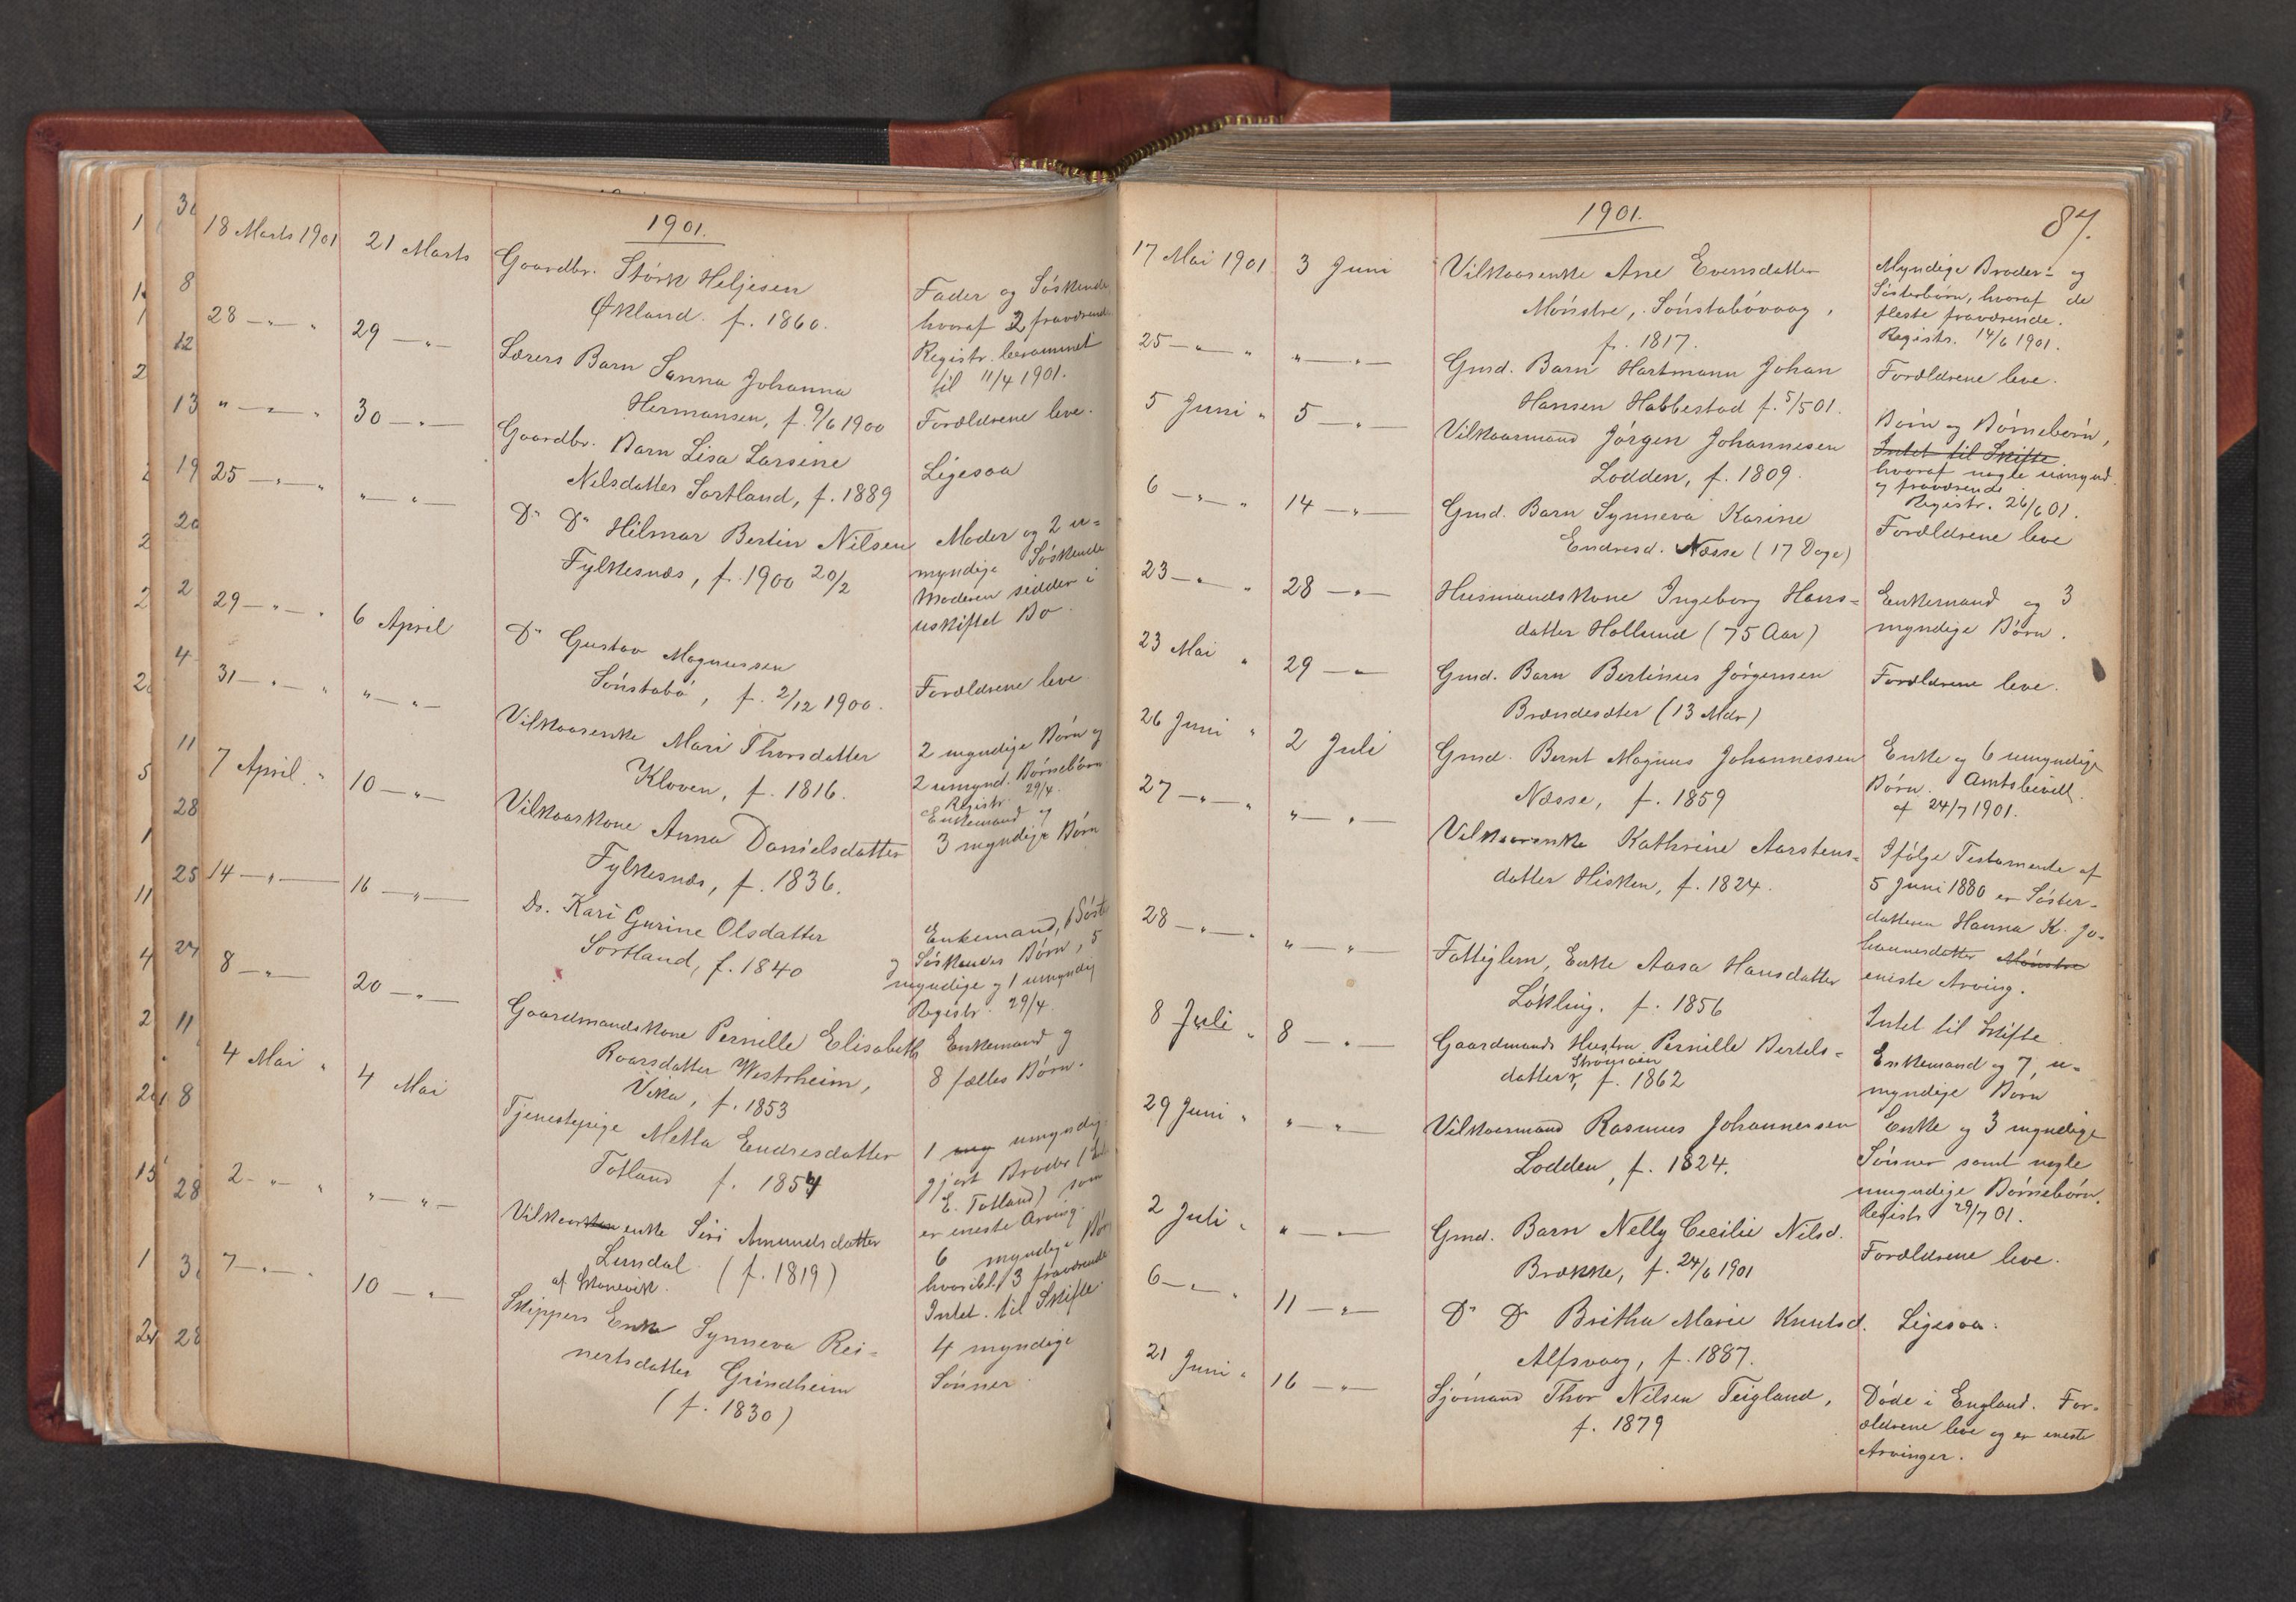 1901.
18 Marts 1901 21 Marts Gaardbr. Störk Heljesen
Økland. f. 1860.
Fader og Söskende
hvoraf 2 fraværende
Registr. berammet
til 11/4 1901.
28 — " — " 29 — " — Lærers Barn Sanna Johanna
Hermansen, f. 9/6 1900
Forældrene leve.
" — " — " 30 — " — Gaardbr. Barn Lisa Larsine
Nilsdatter Sortland, f. 1889
Ligesaa
25 — " — " " — " D° D° Hilmar Bertin Nilsen
Fylkesnæs, f. 1900 20/2
Moder og 2 u=
myndige Söskende
Moderen sidder i
uskiftet Bo.
29 — " — " 6 April D° Gustav Magnussen
Sönstabö, f. 2/12 1900.
Forældrene leve.
31 — " — " " — " — Vilkaarsenke Mari Thorsdatter
Kloven, f. 1816.
2 myndige Börn og
2 umynd. Börnebörn
Registr. 29/4.
7 April " 10 — " — Vilkaarskone Anna Danielsdatter
Fylkesnæs, f. 1836.
Enkemand og
3 myndige Börn
14 — " — 16 — " — Do. Kari Gurine Olsdatter
Sortland, f. 1840
Enkemand, 1 Söst
og Söskendes Börn, 5
myndige og 1 umyndig
Registr. 29/4.
8 — " — 20 — " — Gaardmandskone Pernille Elisabeth
Roarsdatter Westrheim,
Vika, f. 1853
Enkemand og
8 fælles Börn.
4 Mai " 4 Mai Tjenestepige Metta Endresdatter
Totland f. 1854
1 myg umyndig
gjort Broder (
E. Totland) som
er eneste Arving.
2 - " - " " — " — Vilkaarskon enke Siri Amundsdatter
Lundal (f. 1819)
af Skonevik.
6 myndige Bör
hvoribl. 3 fraværende
Intet til Skifte.
7 — " — " 10 — " — Skippers Enke Synneva Rei=
nertsdatter Grindheim
(f. 1830)
4 myndige
Sönner.
1901. 87.
17 Mai 1901 3 Juni Vilkaarsenke Ane Evensdatter
Mönstre, Sönstabövaag,
f. 1817.
Myndige Broder= og
Sösterbörn, hvoraf de
fleste fraværende.
Registr. 14/6 1901.
25 — " — " " — " — Gmd. Barn Hartmann Johan
Hansen Habbestad f. 5/5 01.
Forældrene leve.
5 Juni " 5 — " — Vilkaarsmand Jörgen Johannesen
Lodden, f. 1809.
Börn og Börnebörn,
Intet til Skifte
hvoraf nogle umynd.
og fraværende
Registr. 26/6 01.
6 — " — " 14 — " — Gmd. Barn Synneva Karine
Endresd. Næsse (17 Dage)
Forældrene leve
23 — " — " 28 — " — Husmandskone Ingeborg Hans=
datter Hollund (75 Aar)
Enkemand og 3
myndige Börn.
23 Mai " 29 — " Gmd. Barn Bertinus Jörgensen
Brændesæter (13 Mdr)
Forældrene leve.
26 Juni " 2 Juli Gmd. Bernt Magnus Johannessen
Næsse, f. 1859
Enke og 6 umyndige
Börn. Amtsbevill.
af 24/7 1901.
27 — " — " " — " — Vilkaarsenke Kathrine Aarstens=
datter Hisken, f. 1824.
Ifölge Testamente af
5 Juni 1880 er Söster-
datteren Hanna K. Jo=
hannesdatter Mönstre
eneste Arving.
28 — " — " " — " Fattiglem, Enke Aasa Hansdatter
Lökling. f. 1856
Intet til Skifte
8 Juli " 8 — " — Gaardmands Hustru Pernille Bertels=
datter Strömöen, f. 1862
Enkemand og 7 u=
myndige Börn
29 Juni " " — " — Vilkaarsmand Rasmus Johannessen
Lodden, f. 1824.
Enke og 3 myndige
Sönner samt nogle
umyndige Börnebörn.
Registr. 29/7 01.
2 Juli " " — " — Gmd. Barn Nelly Cecilie Nilsd.
Brække, f. 24/6 1901
Forældrene leve.
6 — " — " 11 — " — D° D° Britha Marie Knutsd.
Alfsvaag, f. 1887.
Ligesaa.
21 Juni " 16 — " — Sjömand Thor Nilsen Teigland,
f. 1879
Döde i England. For-
ældrene leve og er eneste
Arvinger.